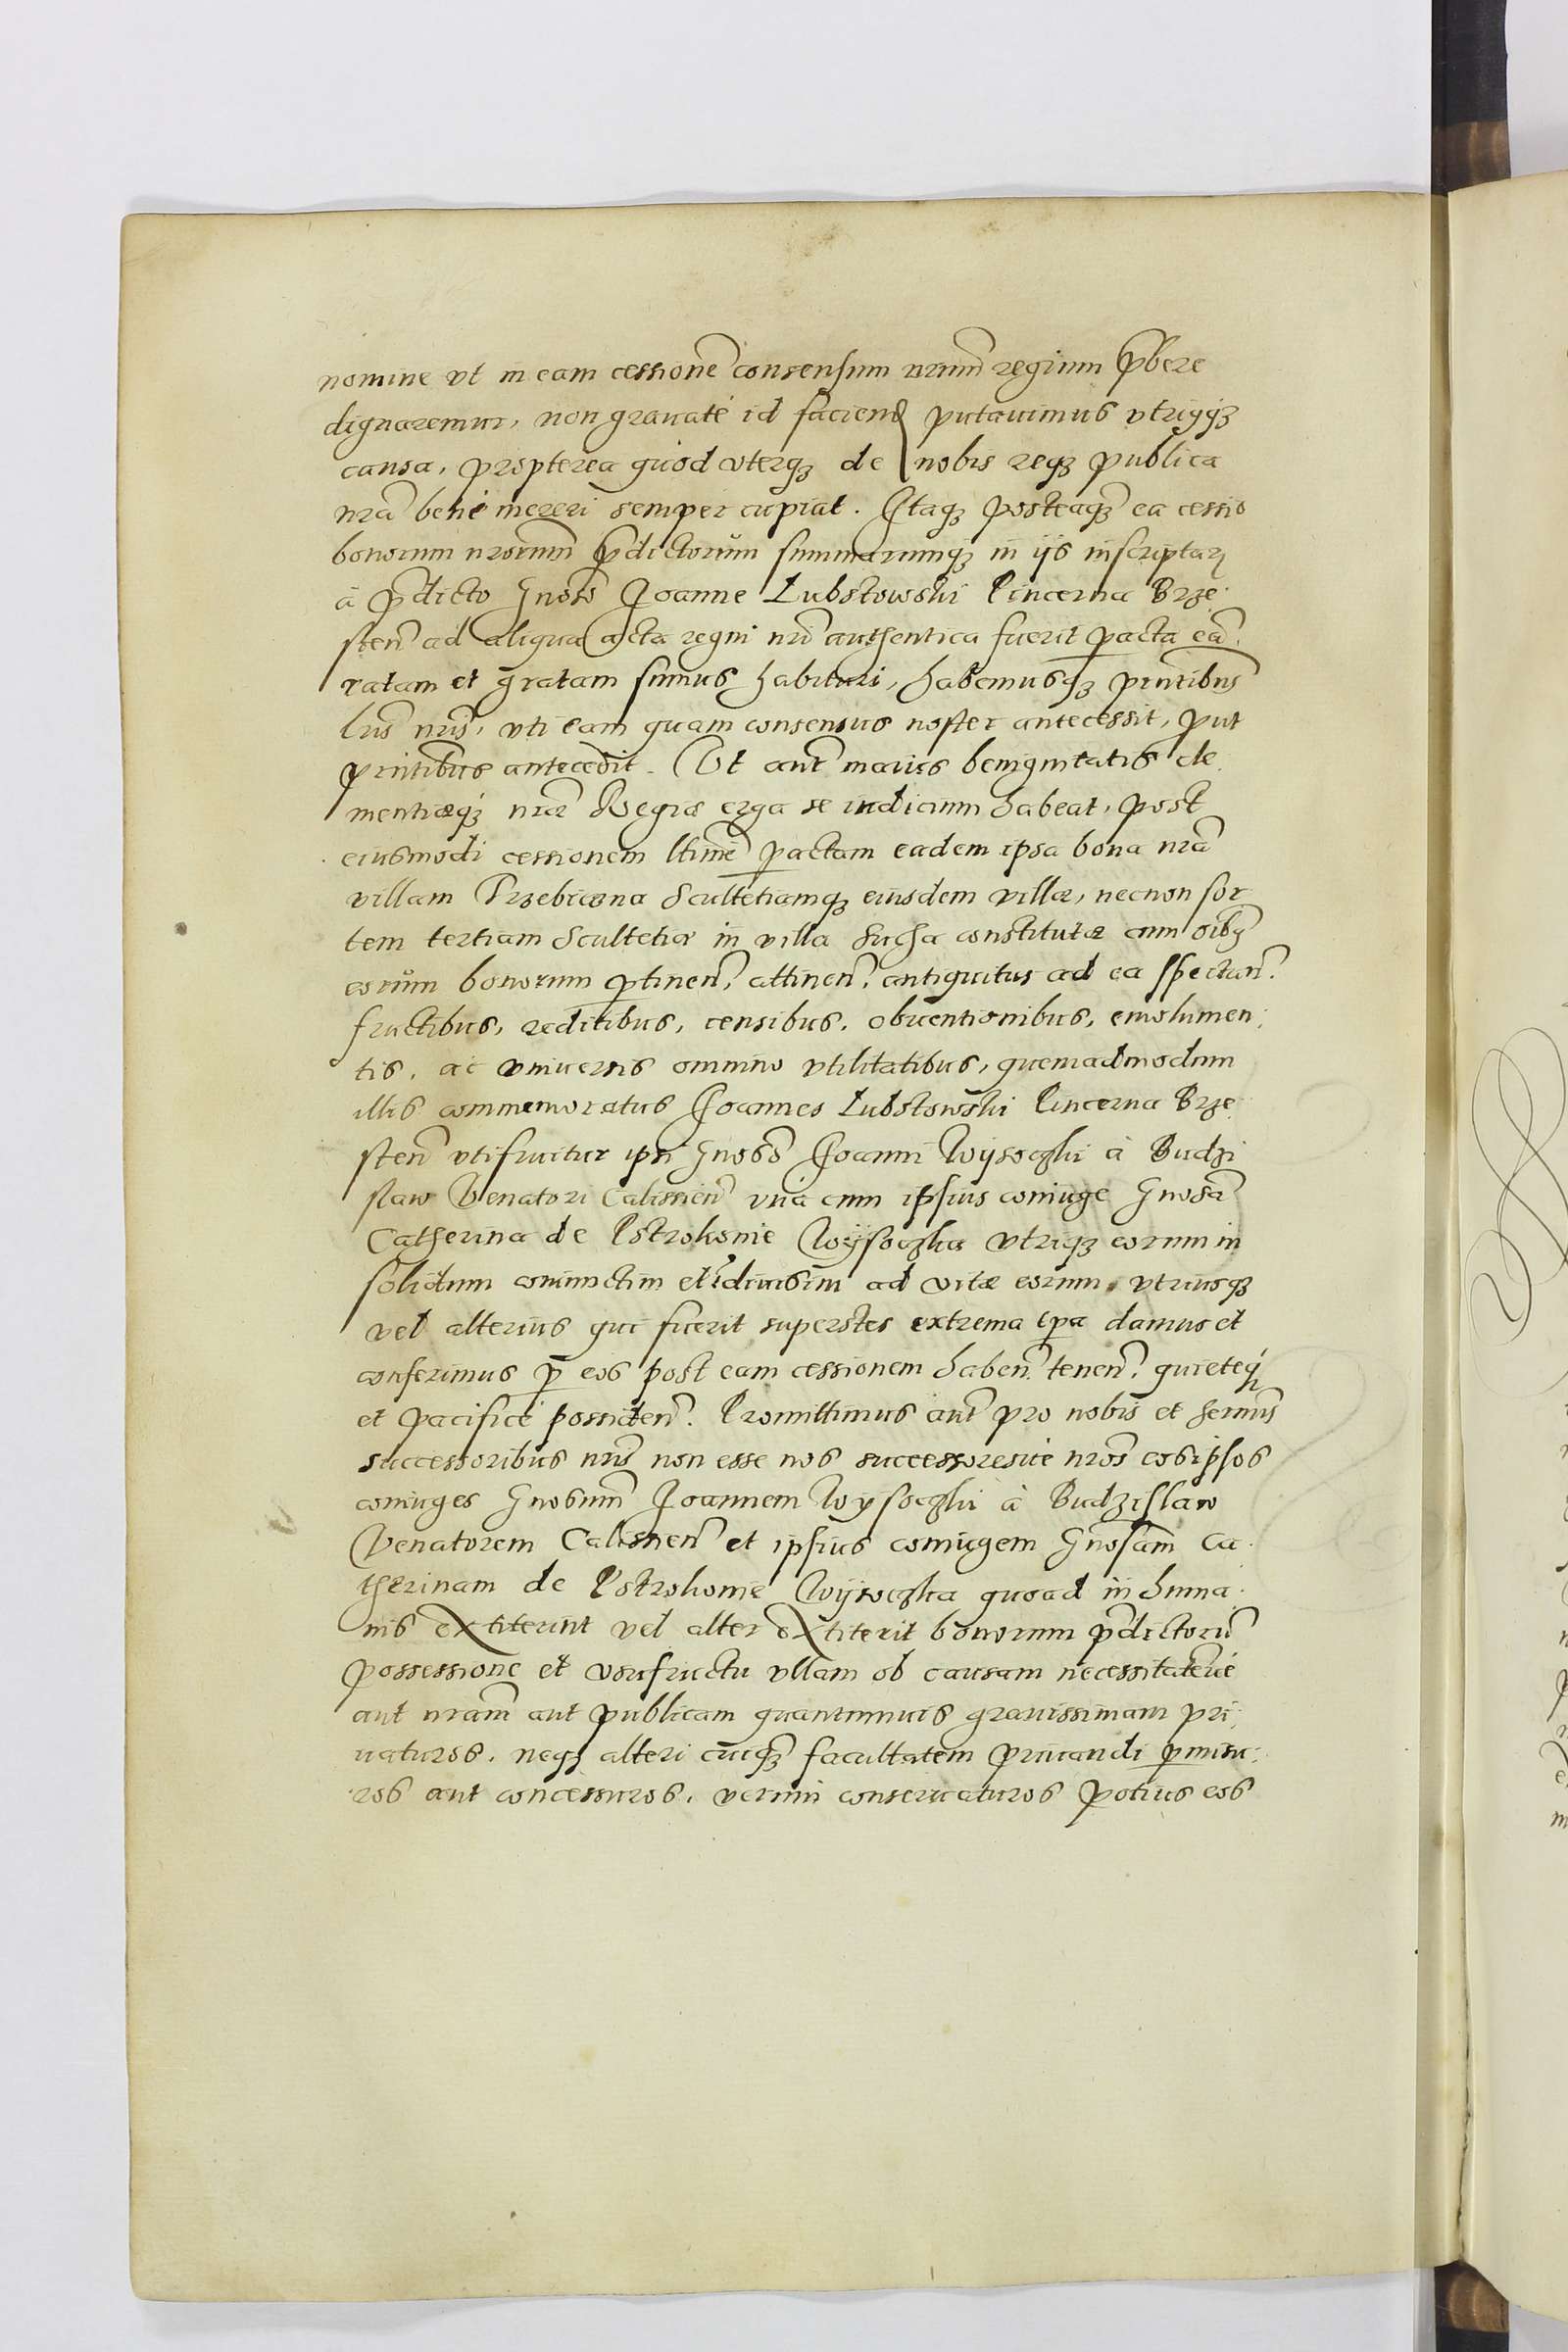 nomine vt in eam cessionē consensum nrum̄ regium p̄bere
dignaremur, non grauaté id faciend putauimus vtriusq₃
causa, propterea quòd vterq₃ de nobis req₃ publica
nrā bené mereri semper cupiat. Itaq₃ posteaq₃ ea cessio
bonorum nrorum̄ p̄dictorum summarumq₃ in ijs inscriptar
à p̄dicto Gnoso Joanne Lubstowski Pincerna Brze
sten̄ ad aliqua acta regni nri authentica fuerit pacta eā
ratam et gratam sumus habituri, habemusq₃ pn̄tibus
lris nris, vti eam quam consensus noster antecessit, put
pn̄tibus antecedit. Vt aut̄ maius benignitatis cle
mentiæq₃ nræ Regiæ erga se indicium habeat, post
eiusmodi cessionem ltimé pactam eadem ipsa bona nrā
villam Przebierna Scultetiamq₃ eiusdem villæ, necnon sor
tem tertiam Scultetiæ in villa Sucha constitutæ cum oib₃
eorum bonorum ptinen̄, attinen̄, antiquitus ad ea spectan̄.
fructibus, reditibus, censibus, obuentionibus, emolumen
tis, ac vniuersis omnino vtilitatibus, quemadmodum
illis commemoratus Joannes Lubstowski Pincerna Brze
sten̄ vtifruitur ipsi Gnoso Joanni Wysoczki à Budzi
slaw Venatori Calissien̄ vna cum ipsius coniuge Gnosā
Catherina de Ostrokonie Wysoczka vtriq₃ eorum in
solidum coniunctim et diuisim ad vitæ eorum vtriusq₃
vel alterius qui fuerit superstes extrema tpa damus et
conferimus p eos post eam cessionem haben̄. tenen̄. quieteq₃
et pacificé possiden̄. Promittimus aut̄ pro nobis et sermis
successoribus nris non esse nos successoresue nros eos ipsos
coniuges Gnosum̄ Joannem Wysoczki à Budzislaw
Venatorem Calissien̄ et ipsius coniugem Gnosam Ca
therinam de Ostrokonie Wysoczka quoad in huma
nis extiterint vel alter extiterit bonorum p̄dictorū
possessione et vsufructu vllam ob causam necessitatémue
aut nram̄ aut publicam quantumuis grauissimam pri
uaturos, neq₃ alteri cuiq₃ facultatem priuandi pmissu
ros aut concessuros, verum conseruaturos potius eos